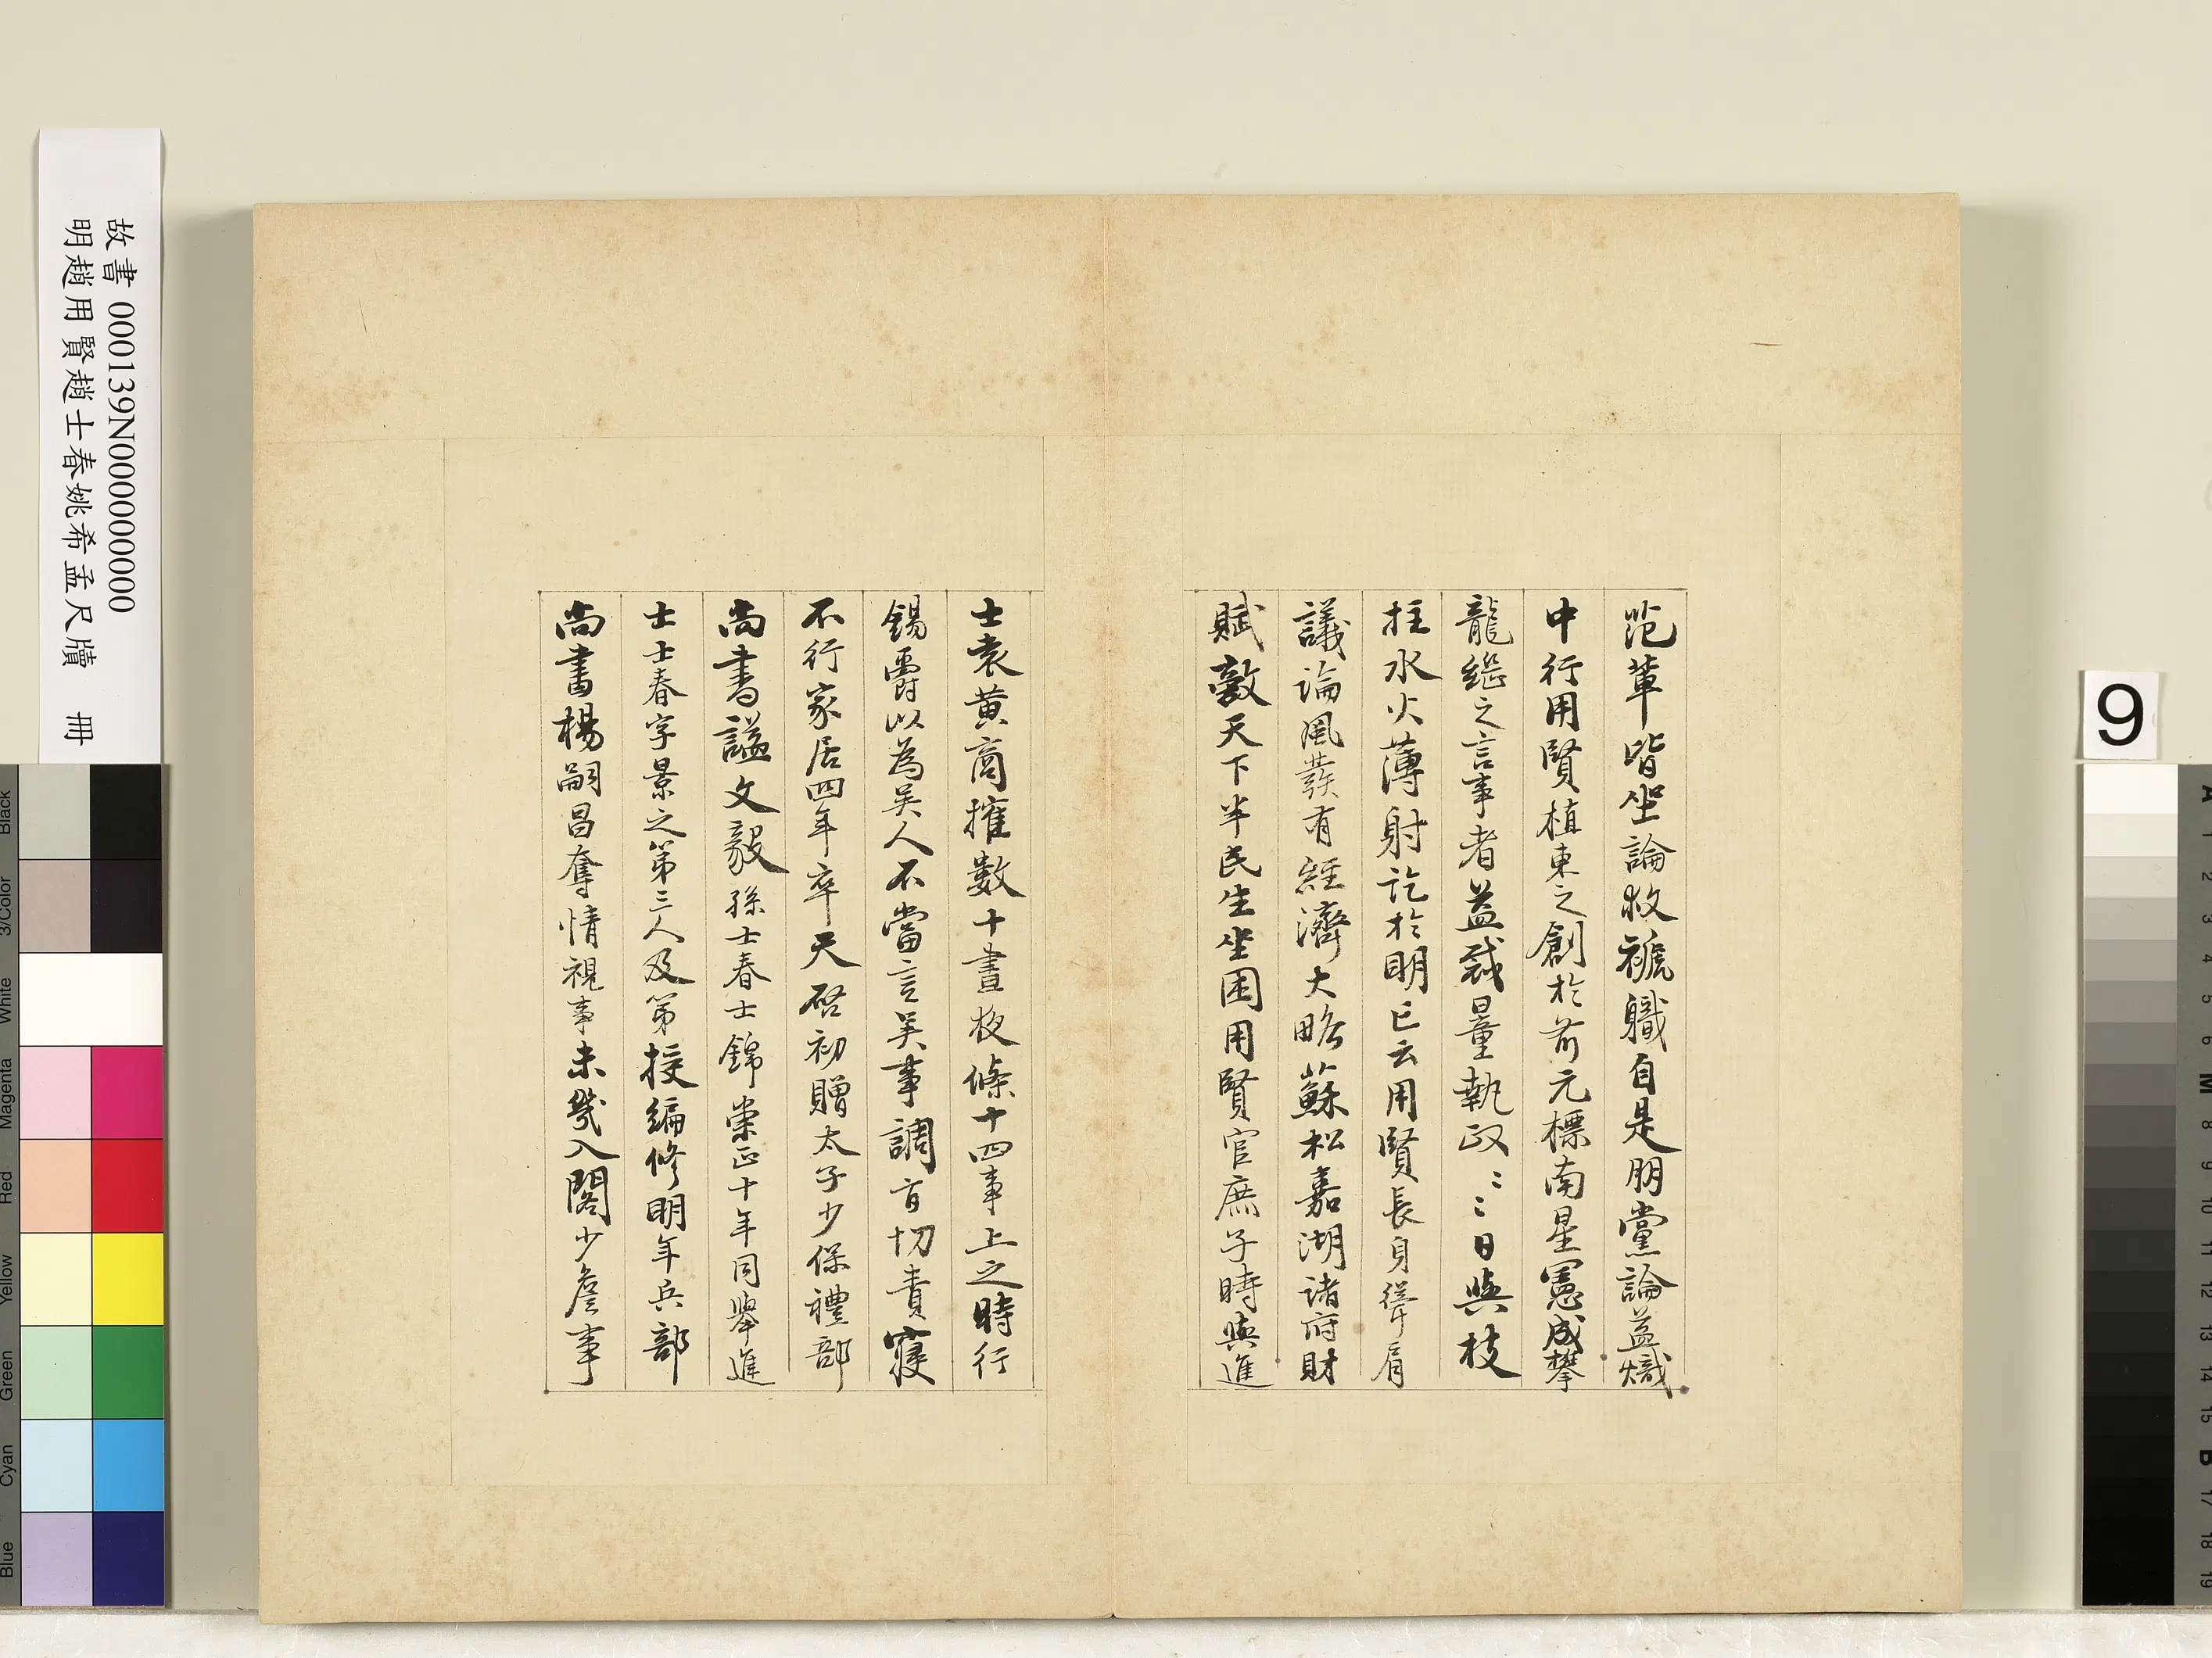 故書 000139N000000000
明趙用賢趙士春姚希孟尺牘 冊
范輩皆坐論救褫職自是朋黨論益熾
中行用賢植東之創於前元標南星憲成攀
龍繼之言事者益裁量執政〻〻日與枝
拄水火薄射訖於明亡云用賢長身聳肩
議論風發有經濟大略蘇松嘉湖諸府財
賦敵天下半民生坐困用賢官庶子時與進
士袁黃商搉數十晝夜條十四事上之時行
錫爵以為吳人不當言吳事調旨切責寢
不行家居四年卒天啓初贈太子少保禮部
尚書謚文毅孫士春士錦崇正十年同舉進
士士春字景之第三人及第授編修明年兵部
尚書楊嗣昌奪情視事未幾入閣少詹事
9
Black
3/Color
White
Magenta
Red
Yellow
Green
Cyan
Blue
A
1
2
3
4
5
6
M
8
9
10
11
12
13
14
15
B
17
18
19